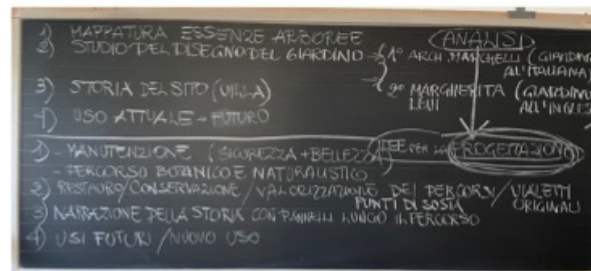 1) MAPPATURA ESSENZE ARBOREE
ANALISI
2) STUDIO DEL DISEGNO DEL GIARDINO → 1° ARCH. MARCHELLI (GIARDINO ALL'ITALIANA)
2° MARGHERITA LEVI (GIARDINO ALL'INGLESE
3) STORIA DEL SITO (VILLA)
4) USO ATTUALE → FUTURO
IDEE PER LA PROGETTAZIONE
1) - MANUTENZIONE (SICUREZZA + BELLEZZA)
- PERCORSO BOTANICO E NATURALISTICO
2) RESTAURO/CONSERVAZIONE/VALORIZZAZIONE DEI PERCORSI/VIALETTI ORIGINALI
PUNTI DI SOSTA
3) NARRAZIONE DELLA STORIA CON PANNELLI LUNGO IL PERCORSO
4) USI FUTURI/NUOVO USO